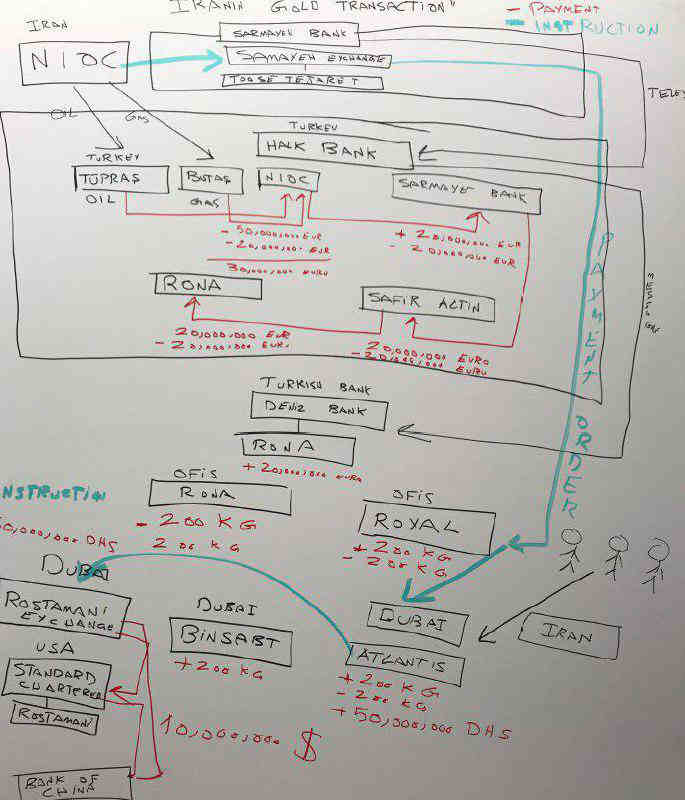 IRANIN GOLD TRANSACTION"
- PAYMENT
- INSTRUCTION
IRAN
NIOC
SARMAYEH BANK
SAMAYEH EXCHANGE
TOOSE TEJARET
OIL
GAS
TURKEY
HALK BANK
TURKEY
TUPRAS
OIL
BOTAS
GAS
NIOC
SARMAYEH BANK
- 50,000,000 EUR
- 20,000,000 EUR
30,000,000 EURO
+ 20,000,000 EUR
- 20,000,000 EUR
RONA
SAFIR ALTIN
20,000,000 EUR
- 20,000,000 EURO
20,000,000 EURO
- 20,000,000 EURO
PAYMENT ORDER
TURKISH BANK
DENIZ BANK
RONA
+ 20,000,000 EURO
OFIS
RONA
- 200 KG
200 KG
OFIS
ROYAL
+ 200 KG
- 200 KG
NSTRUCTION
0,000,000 DHS
DUBAI
ROSTAMANI EXCHANGE
DUBAI
BINSABT
+ 200 KG
DUBAI
ATLANTIS
+ 200 KG
- 200 KG
+ 50,000,000 DHS
IRAN
USA
STANDARD CHARTERED
ROSTAMANI
10,000,000 $
BANK OF CHINA